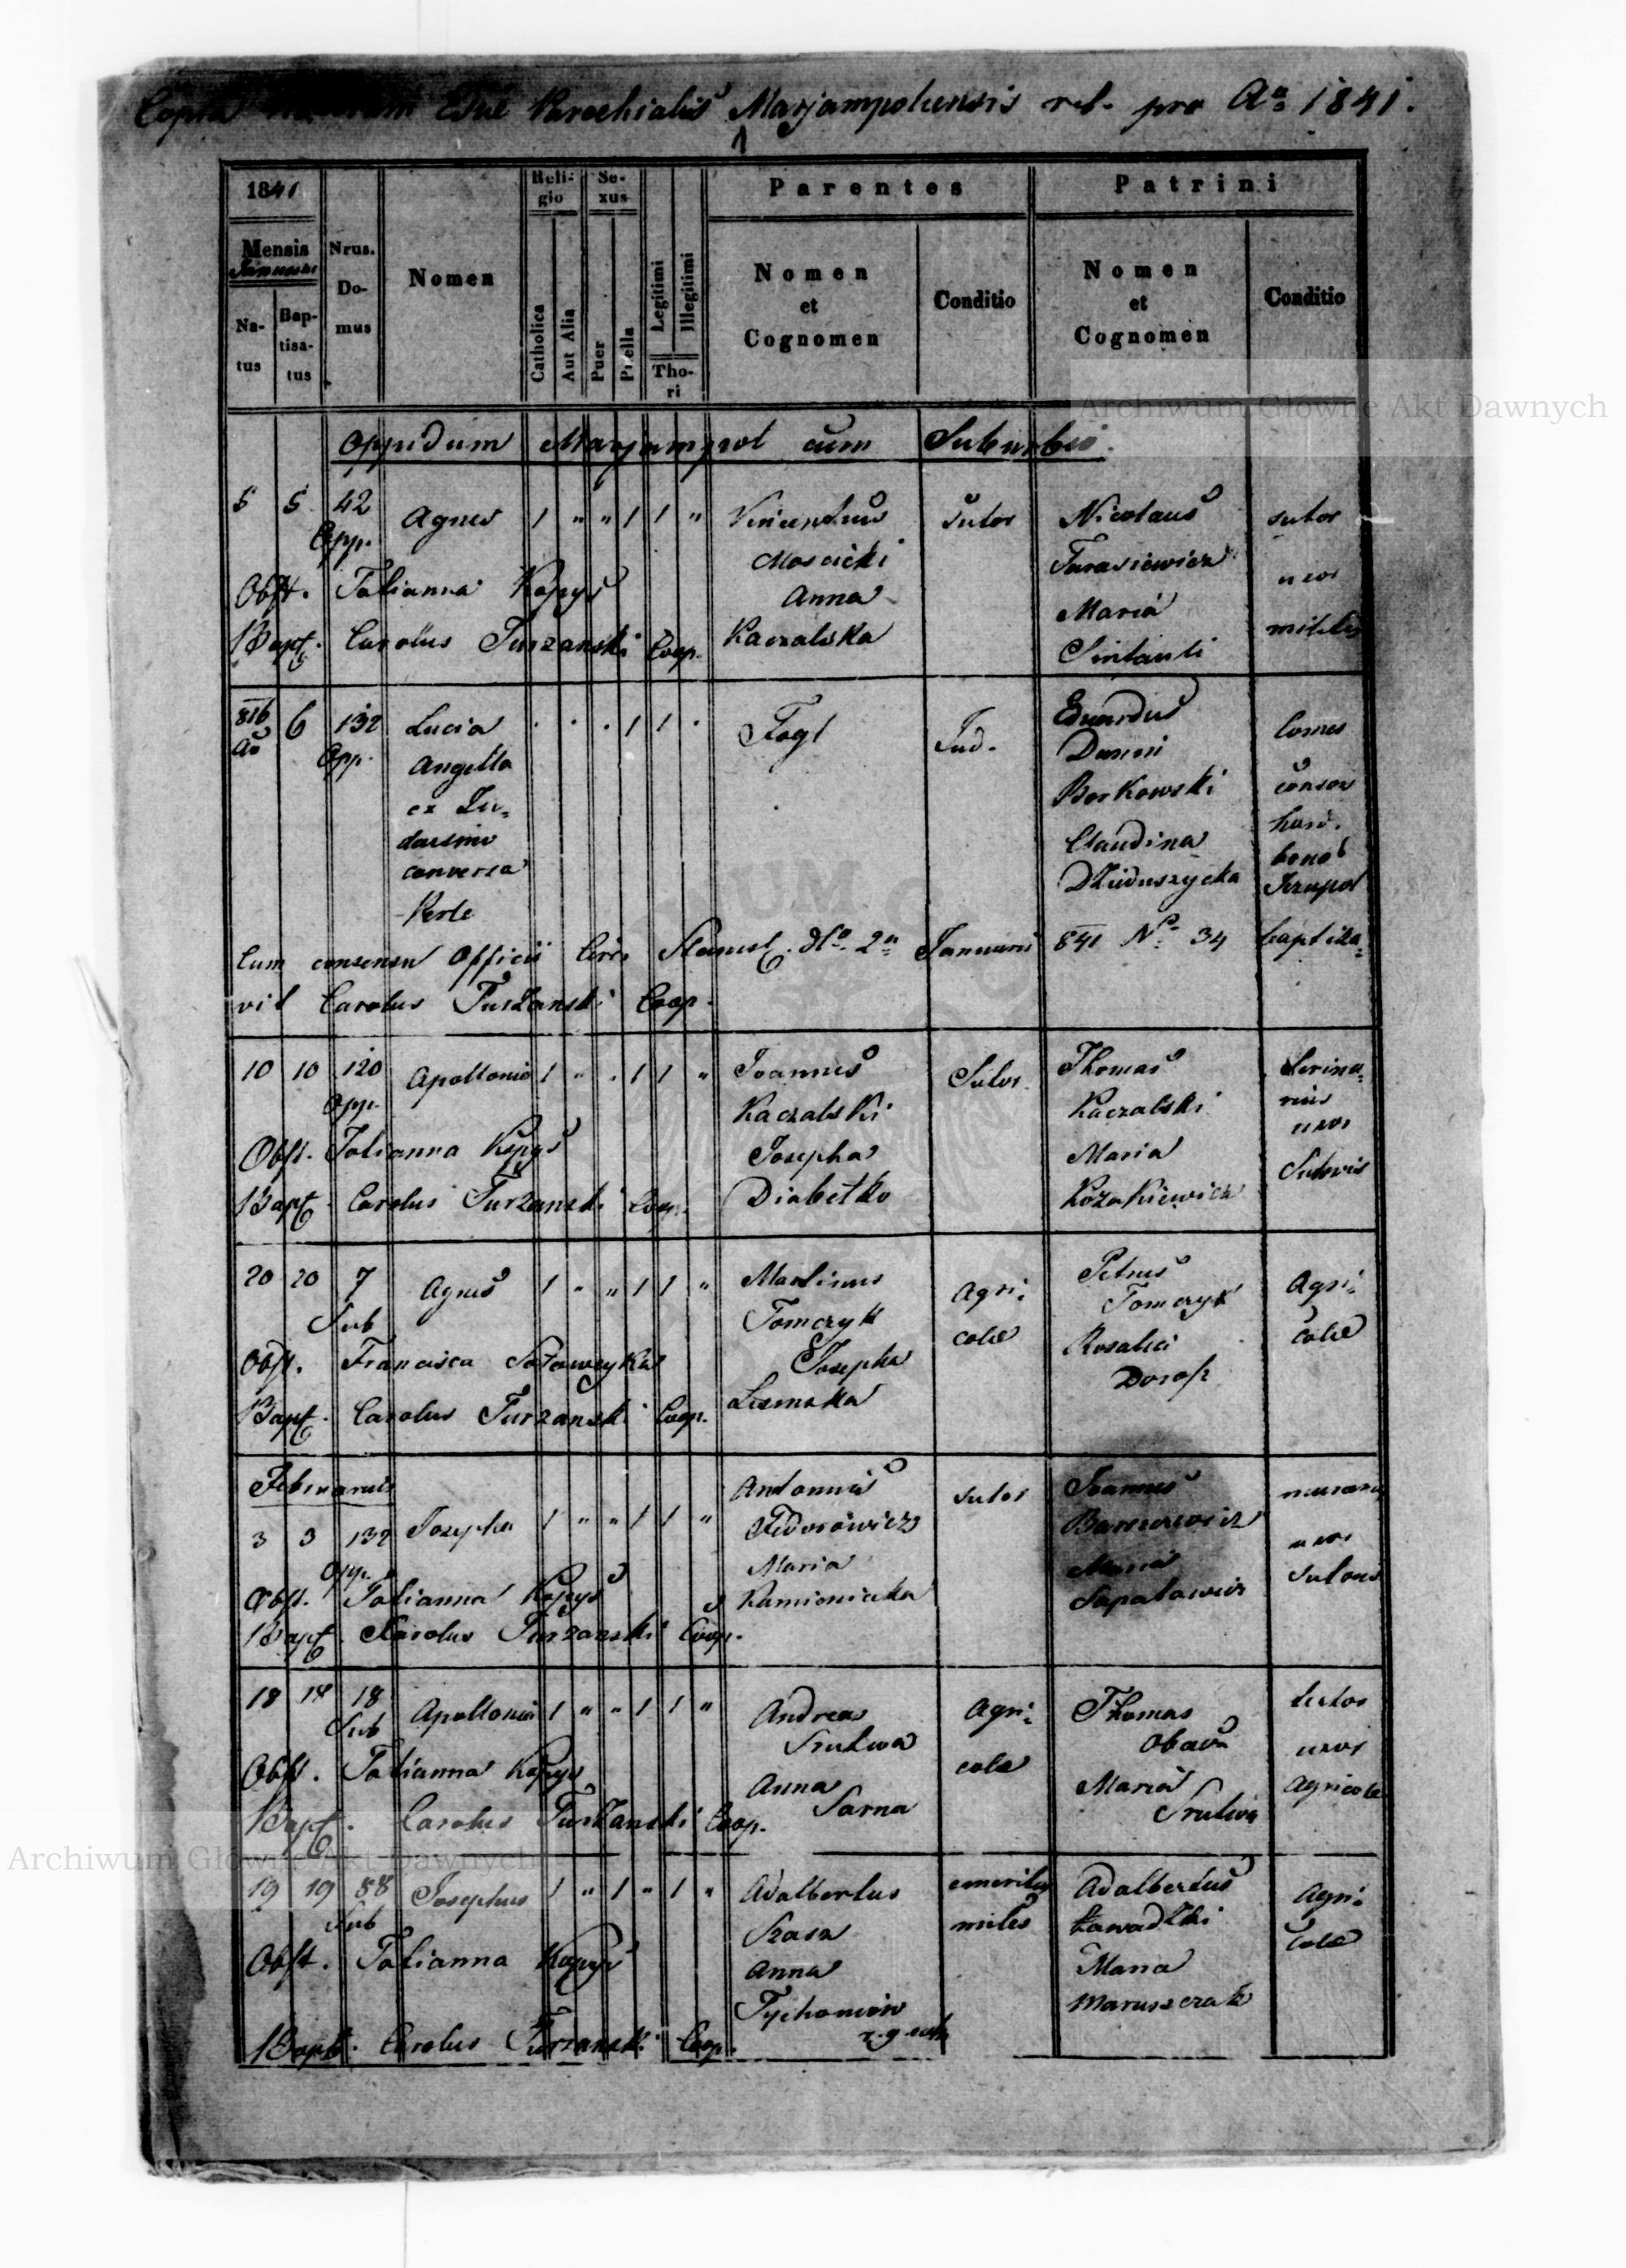 Copia Natorum Eccl Parochialis Marjampolensis r.l. pro Ao 1841.
1
1841
Mensis
Januarii
Natus
Baptisatus
Nrus. Domus
Nomen
Religio
Catholica
Aut Alia
Sexus
Puer
Puella
Legitimi
Illegitimi
Thori
Parentes
Nomen et Cognomen
Conditio
Patrini
Nomen et Cognomen
Conditio
Oppidum Marjampol cum Suburbio.
5 5 42 Agnes 1 " " 1 1 " Vincentius Sutor Nicolaus sutor
Opp. Moscicki Tarasiewicz
Obst. Tatianna Kopyś Anna Maria uxor
Bapt. Carolus Turzanski Coop. Kaczalska militis
816 6 132 Lucia . . . 1 1 . Fogl Jud. Eduardus Comes
Ao Opp. Angella Dunin
ex Ju- Borkowski consor
daismo Claudina haer.
conversa Dzieduszycka bonor
Perle Jezupol
Cum consensu Officii Circ. Stanisl. dto 2a Januarii 841 No 34 baptiza-
vit Carolus Turzanski Coop.
10 10 120 Apollonia 1 " . 1 1 " Joannes Sutor Thomas Scrina-
Opp. Kaczalski Kaczalski rius
Obst. Tatianna Kopyś Josepha Maria uxor
Bapt. Carolus Turzanski Coop. Diabetko Kozakiewicz Sutoris
20 20 7 Agnes 1 " " 1 1 " Martinus Agri- Petrus Agri-
Sub Tomczyk colae Tomczyk colae
Obst. Francisca Josepha Rosalia
Bapt. Carolus Turzanski Coop.
Februarius
3 3 132 Josepha 1 " " 1 1 " Antonius sutor Joannes
Opp. Fedorowicz uxor
Obst. Tatianna Kopyś Maria Maria Sutoris
Bapt. Carolus Turzanski Coop. Kamieniecka
18 18 18 Apollonia 1 " " 1 1 " Andreas Agri- Thomas sutor
Sub Srutwa colae uxor
Obst. Tatianna Kopyś Anna Maria Agricolae
Bapt. Carolus Turzanski Coop. Sarna Srutwa
19 19 58 Josephus 1 " 1 " 1 " Adalbertus emeritus Adalbertus Agri-
Sub Szasz miles Zawadzki colae
Obst. Tatianna Kopyś Anna Maria
Maruszczak
Bapt. Carolus Turzanski Coop.
Archiwum Główne Akt Dawnych
Archiwum Główne Akt Dawnych